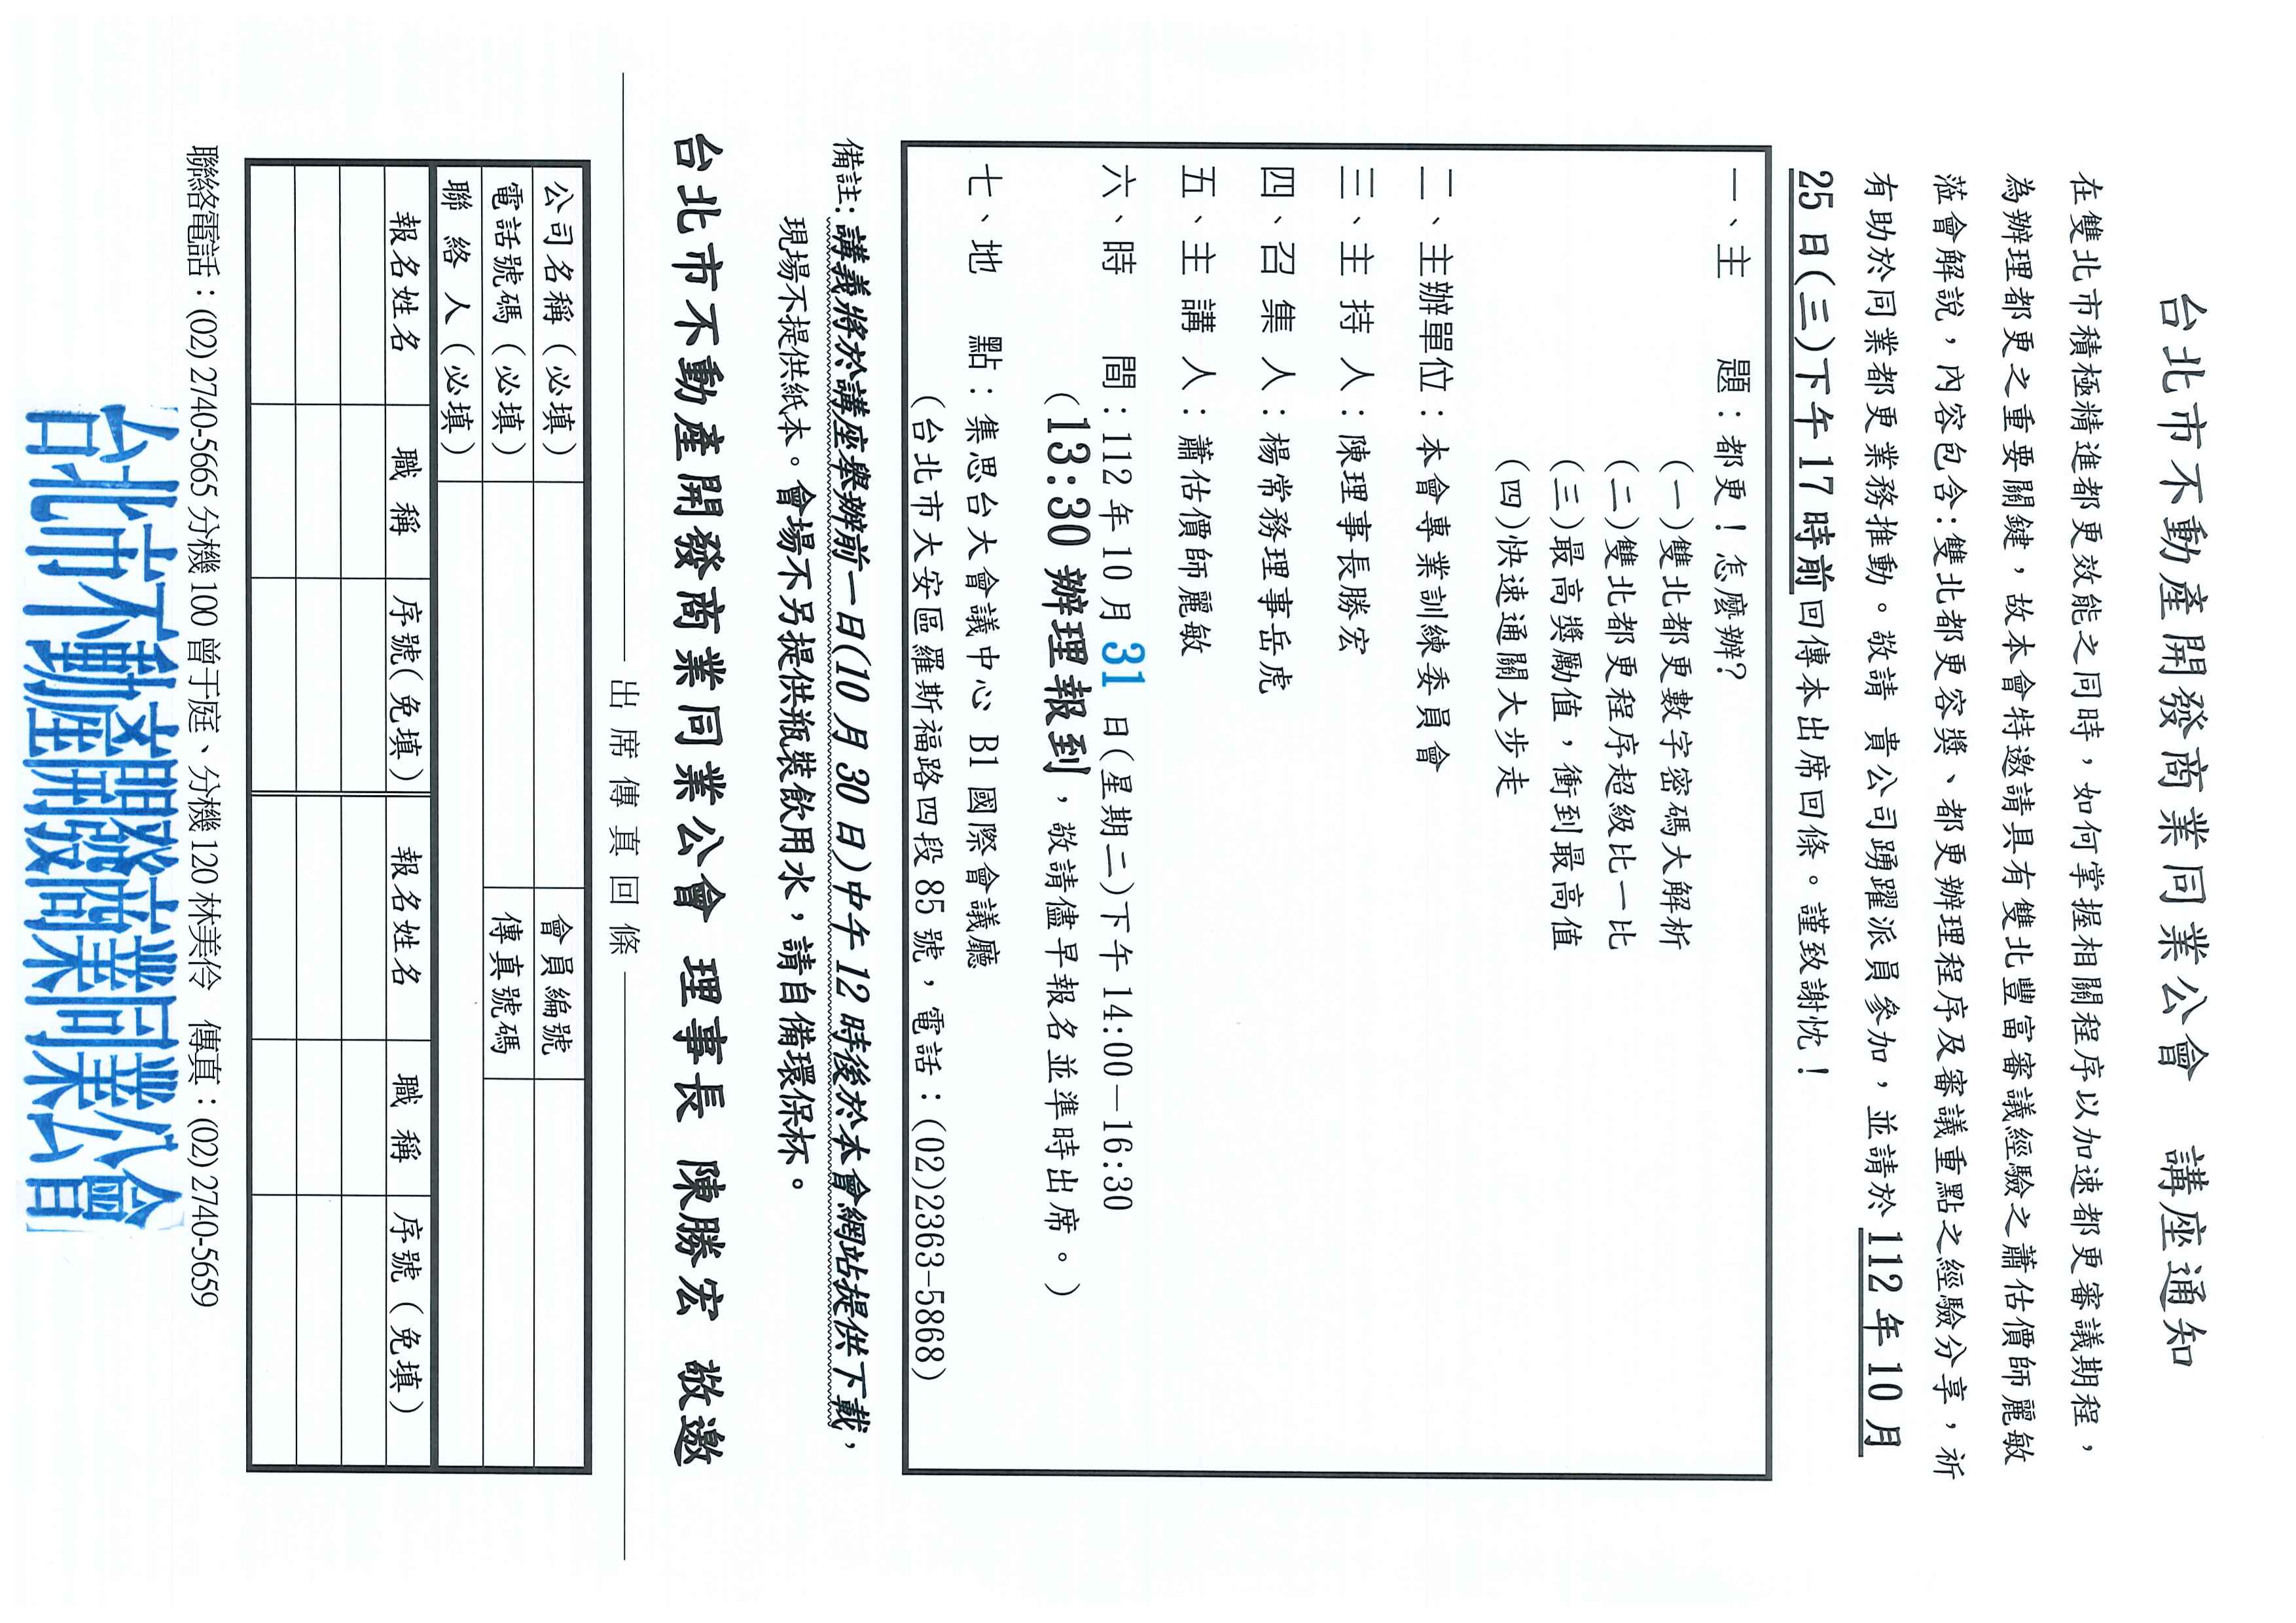 台北市不動產開發商業同業公會　講座通知
在雙北市積極精進都更效能之同時，如何掌握相關程序以加速都更審議期程，
為辦理都更之重要關鍵，故本會特邀請具有雙北豐富審議經驗之蕭估價師麗敏
蒞會解說，內容包含:雙北都更容獎、都更辦理程序及審議重點之經驗分享，祈
有助於同業都更業務推動。敬請 貴公司踴躍派員參加，並請於 112 年 10 月
25 日(三)下午 17 時前回傳本出席回條。謹致謝忱！
一、主　　題：都更！怎麼辦?
(一)雙北都更數字密碼大解析
(二)雙北都更程序超級比一比
(三)最高獎勵值，衝到最高值
(四)快速通關大步走
二、主辦單位：本會專業訓練委員會
三、主 持 人：陳理事長勝宏
四、召 集 人：楊常務理事岳虎
五、主 講 人：蕭估價師麗敏
六、時　　間：112 年 10 月 31 日(星期二)下午 14:00－16:30
(13:30 辦理報到，敬請儘早報名並準時出席。)
七、地　　點：集思台大會議中心 B1 國際會議廳
(台北市大安區羅斯福路四段 85 號，電話：(02)2363-5868)
備註:講義將於講座舉辦前一日(10 月 30 日)中午 12 時後於本會網站提供下載，
現場不提供紙本。會場不另提供瓶裝飲用水，請自備環保杯。
台北市不動產開發商業同業公會 理事長 陳勝宏 敬邀
出席傳真回條
公司名稱（必填） 會員編號
電話號碼（必填） 傳真號碼
聯 絡 人（必填）
報名姓名 職 稱 序號(免填) 報名姓名 職 稱 序號（免填）
聯絡電話：(02) 2740-5665 分機 100 曾于庭、分機 120 林美伶 傳真：(02) 2740-5659
台北市不動產開發商業同業公會